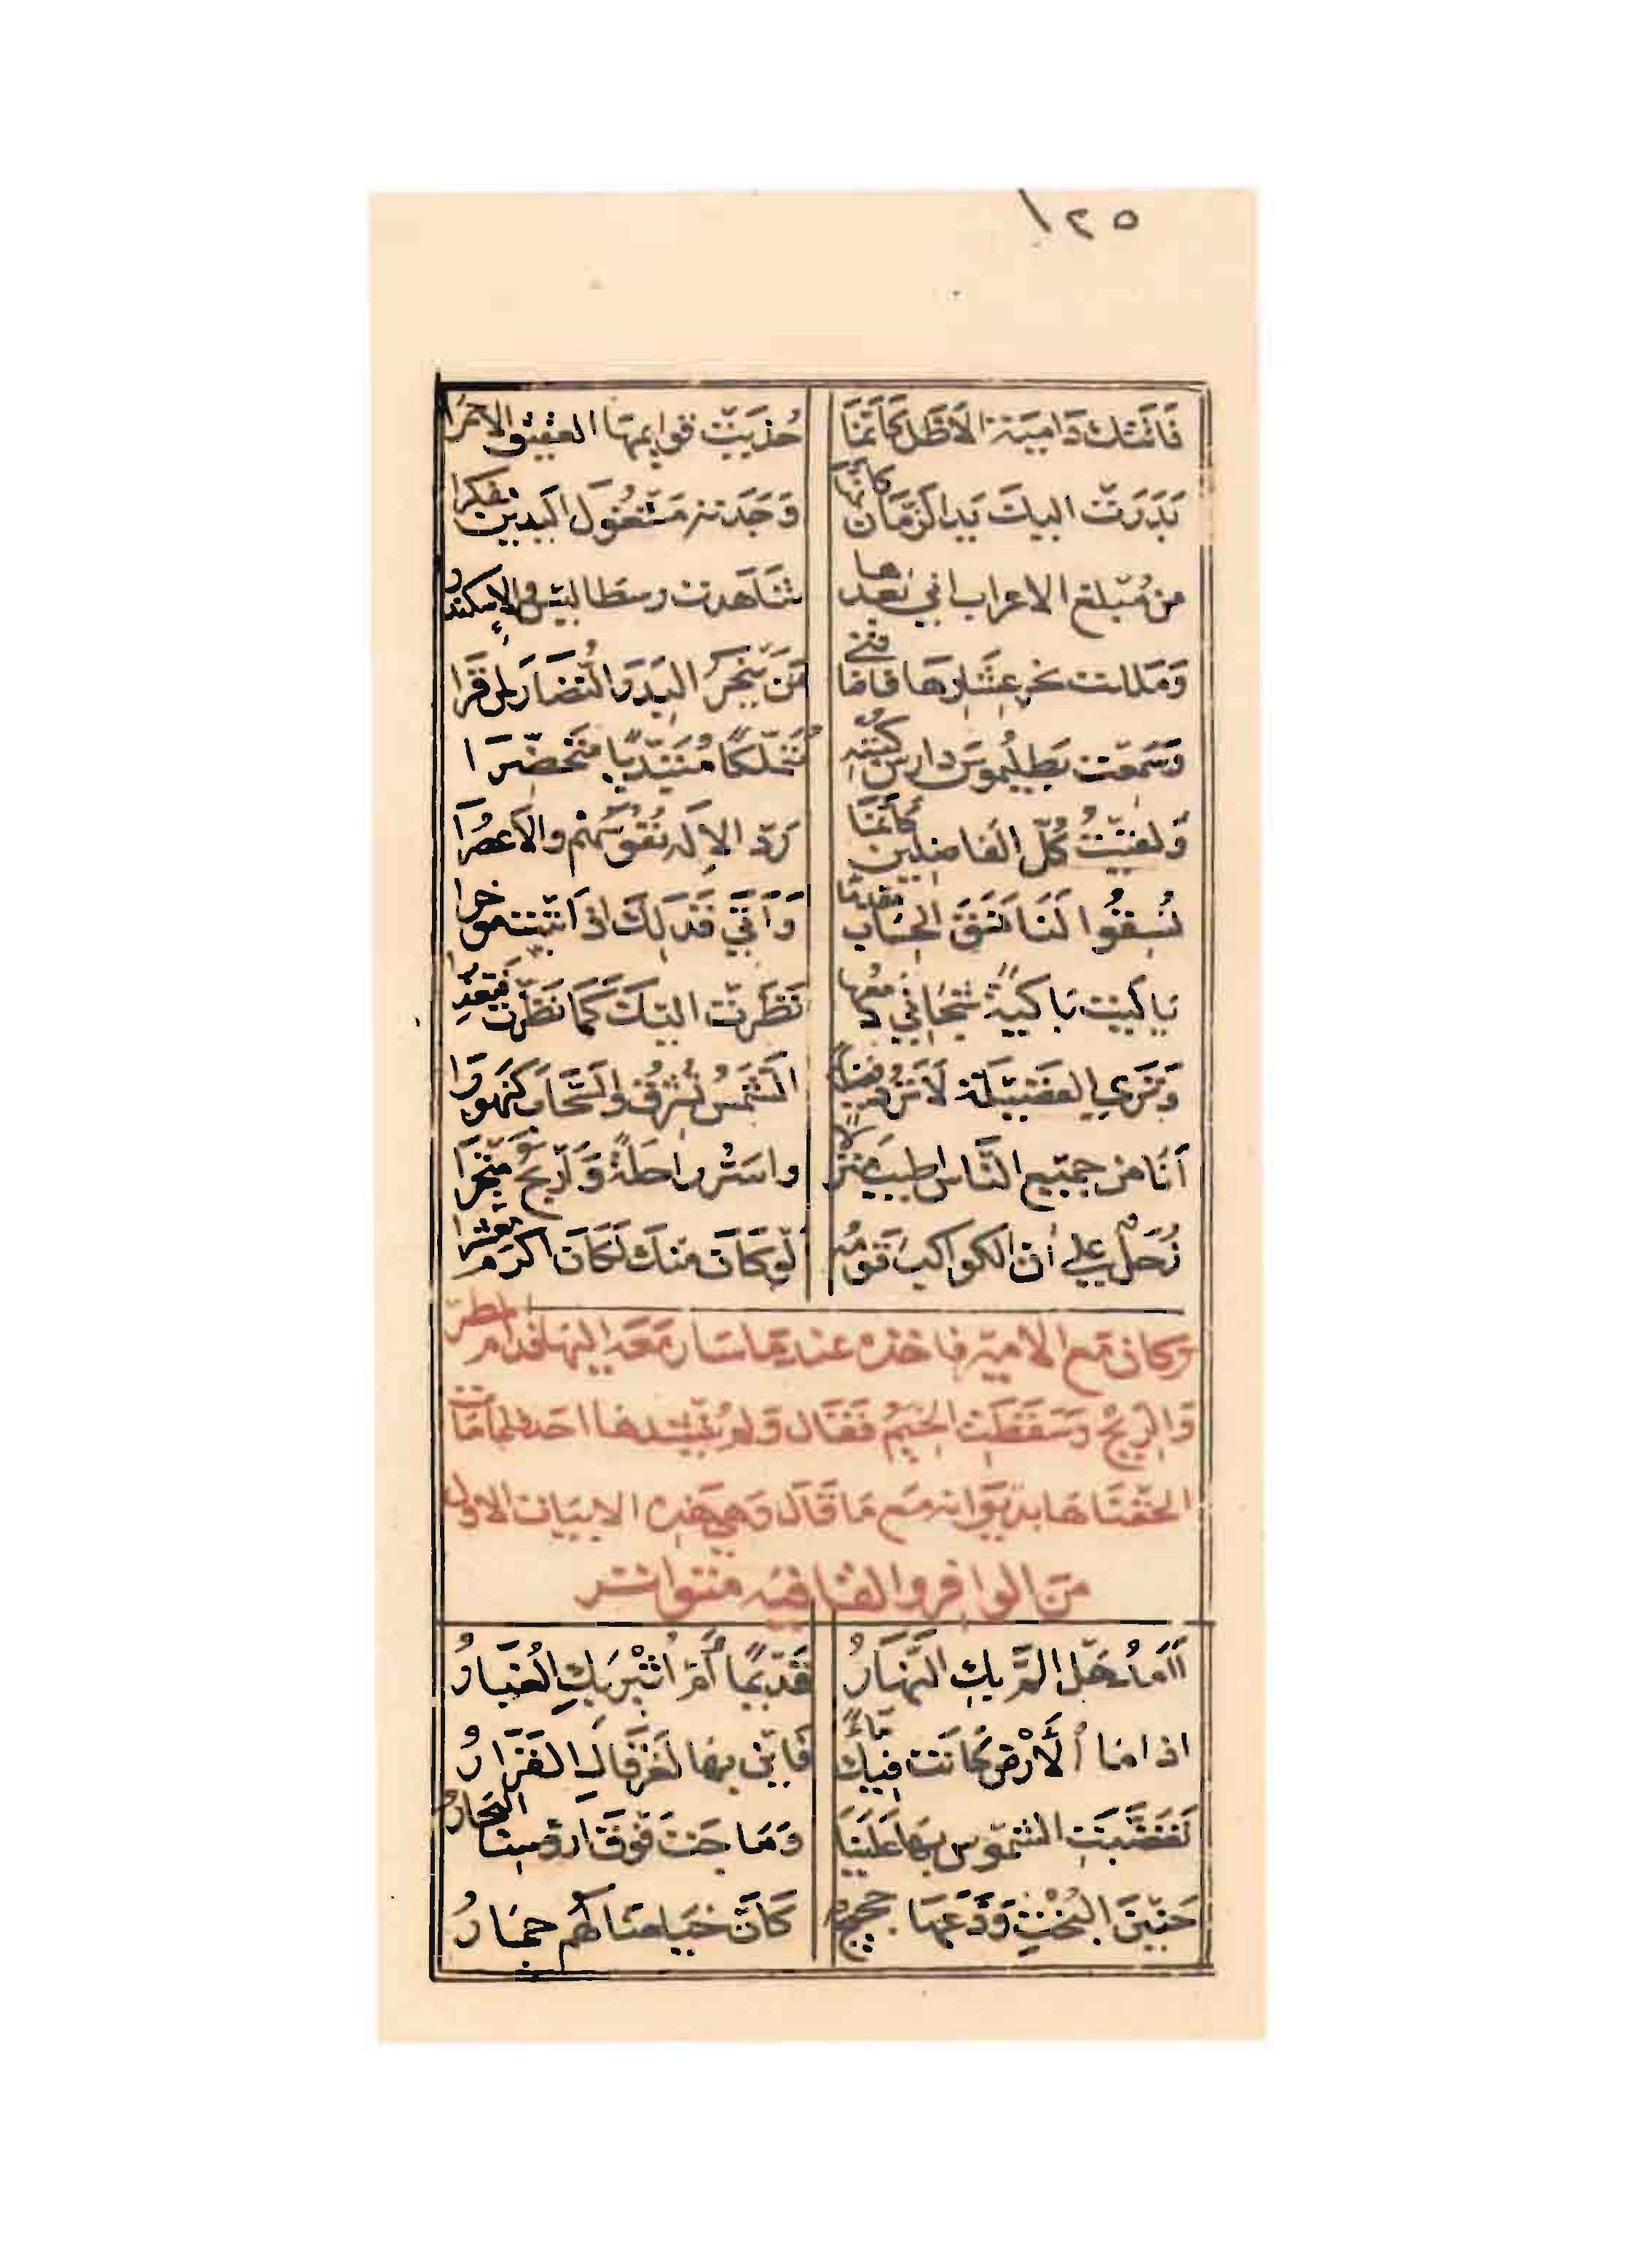 ١٢٥
فَاتَتْكَ دَامِيَةَ الأَظَلِّ كَأَنَّمَا حُذِيَتْ قَوايمُهَا العَقيقَ الاحمَرَا
بَدَرَتْ اليكَ يَدَ الزَّمَانِ كَانَّهَا وَجَدَتهُ مَشْغُولَ اليَدينِ مفكرا
من مُبلغ الاعراب اني بَعدها شَاهَدت رسطاليس والإسكندرا
وَمَللت نحر عِشَارِهَا فاضافني مَن يَنحَرُ البِدَرَ النُّضَارَ لمن قَرَا
وَسَمعت بَطليُموسَ دارس كُتبِهِ مُتَملكًا مُتَبَدِّيًا مُتَحضِّرَا
وَلَقيتُ كُلَّ الفاضلين كَأَنَّمَا رَدَّ الإِلهُ نُفُوسَهُم والأَعصُرَا
نُسِقُوا لَنَا نَسَقَ الحِسَابِ مقدمًا وَأَتَى فَذَلِكَ اذ اتيت موخرا
يَا لَيت بَاكيةً شَجَاني دمعها نَظَرَت اليكَ كَمَا نَظَرتُ فتعذرا
وَتَرَى الفَضيلَةَ لَا تَرُدُّ فضيلةً الشَّمسُ تُشرِقُ والسَّحَابَ كَنَهورَا
أَنَا من جميع النَّاس اطيب منزلاً واسَرُّ راحلَةً وَأَربَحُ مَتجَرَا
زُحَلٌ على ان الكواكبَ قَومُه لَو كَانَ منكَ لَكَانَ اكرَمَ معشرا
وَكان مَع الامير فاخذه عندما سَار مَعه اليها قدام المطر
وَالرّيحُ وَسَقَطَت الخِيَمُ فَقَال وَلم يُقَيّدها احد فلما مَات
الحَقنَاهَا بديوَانه مَع مَا قَال وَهي هَذه الابيات الاول
من الوافر والقافيه متواتر
قَديمًا أَمْ اثْيرَ بكِ الغُبَارُ
اذا مَا الأَرْضُ كَانَت فِيكِ مَاءً فَاين بِهَا لغَرْقَاكِ القَرَارُ
تَغَضَّبَتِ الشموس بِهَا عَلَينَا وَمَاجَت فَوقَ ارؤسِنَا البحارُ
حَنينَ البُخْتِ وَدَّعَهَا حجيجٌ كَأَنَّ خيَامنَا لَهُم جِمَارُ